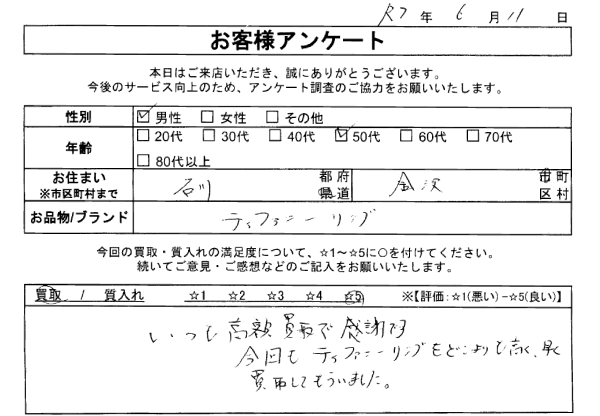 R7 年 6 月 11 日
お客様アンケート
本日はご来店いただき、誠にありがとうございます。
今後のサービス向上のため、アンケート調査のご協力をお願いいたします。
性別 ☑ 男性 □ 女性 □ その他
年齢 □ 20代 □ 30代 □ 40代 ☑ 50代 □ 60代 □ 70代
□ 80代以上
お住まい ※市区町村まで 石川 都府県道 金沢 市町区村
お品物/ブランド ティファニーリング
今回の買取・質入れの満足度について、☆1～☆5に○を付けてください。
続いてご意見・ご感想などのご記入をお願いいたします。
買取 / 質入れ ☆1 ☆2 ☆3 ☆4 ☆5 ※【評価:☆1(悪い)－☆5(良い)】
いつも高額買取で感謝です
今回もティファニーリングをどこよりも高く、
買取してもらいました。